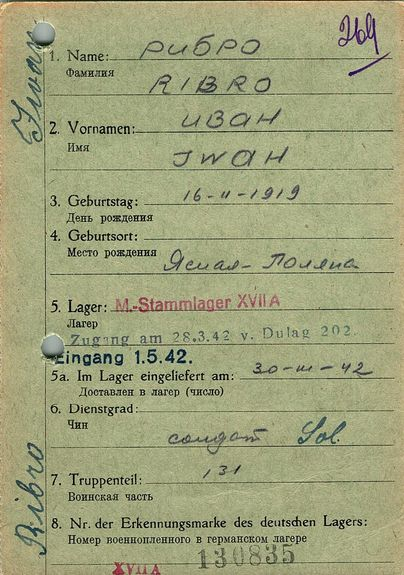 269
1. Name: РИБРО
Фамилия
RIBRO
2. Vornamen: ИВАН
Имя
IWAN
3. Geburtstag: 16-II-1919
День рождения
4. Geburtsort:
Место рождения Ясная-Поляна
5. Lager: M.-Stammlager XVII A
Лагер
Zugang am 28.3.42 v. Dulag 202.
Eingang 1.5.42.
5a. Im Lager eingeliefert am: 30-III-42
Доставлен в лагер (число)
6. Dienstgrad:
Чин
солдат Sol.
7. Truppenteil: 131
Воинская часть
8. Nr. der Erkennungsmarke des deutschen Lagers:
Номер военнопленного в германском лагере
XVII A 130835
Ribro Iwan